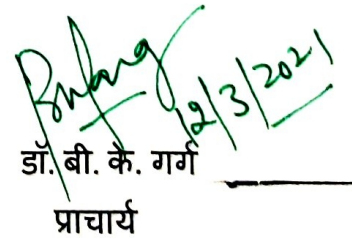 12/3/2021
डॉ. बी. के. गर्ग
प्राचार्य